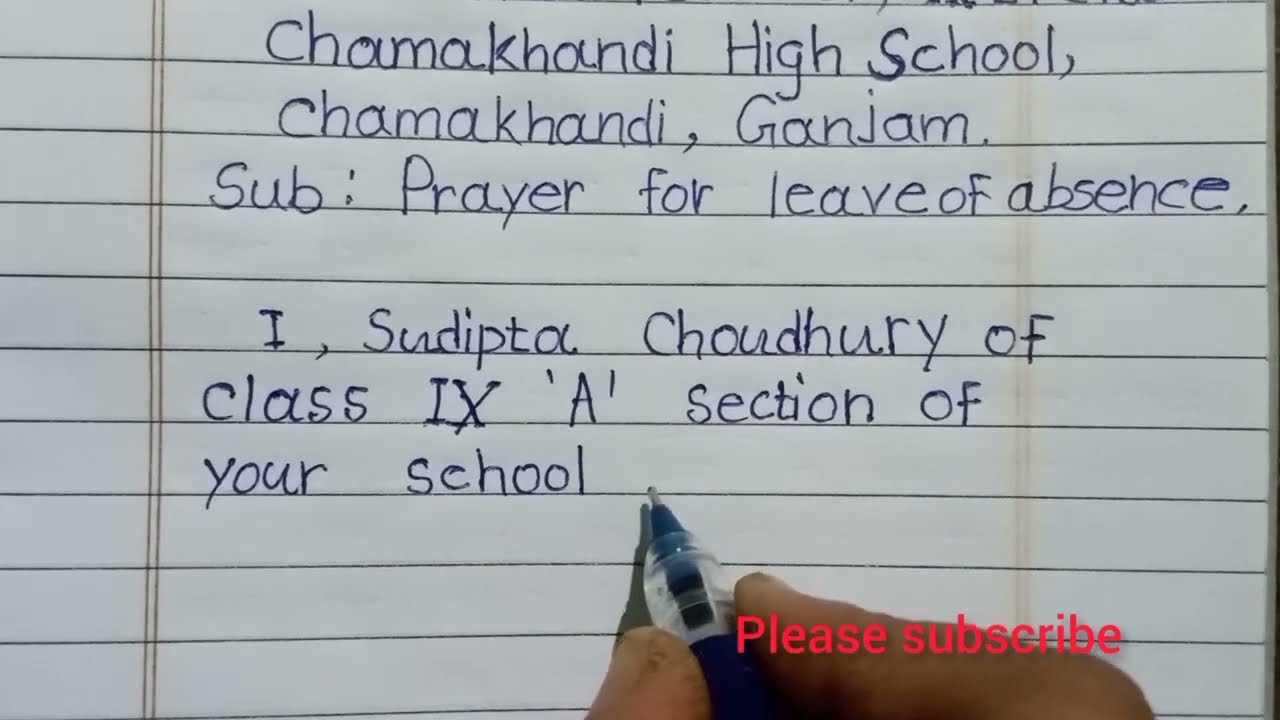 Chamakhandi High School,
Chamakhandi, Ganjam.
Sub: Prayer for leave of absence.
I, Sudipta Choudhury of
class IX 'A' section of
your school
Please subscribe